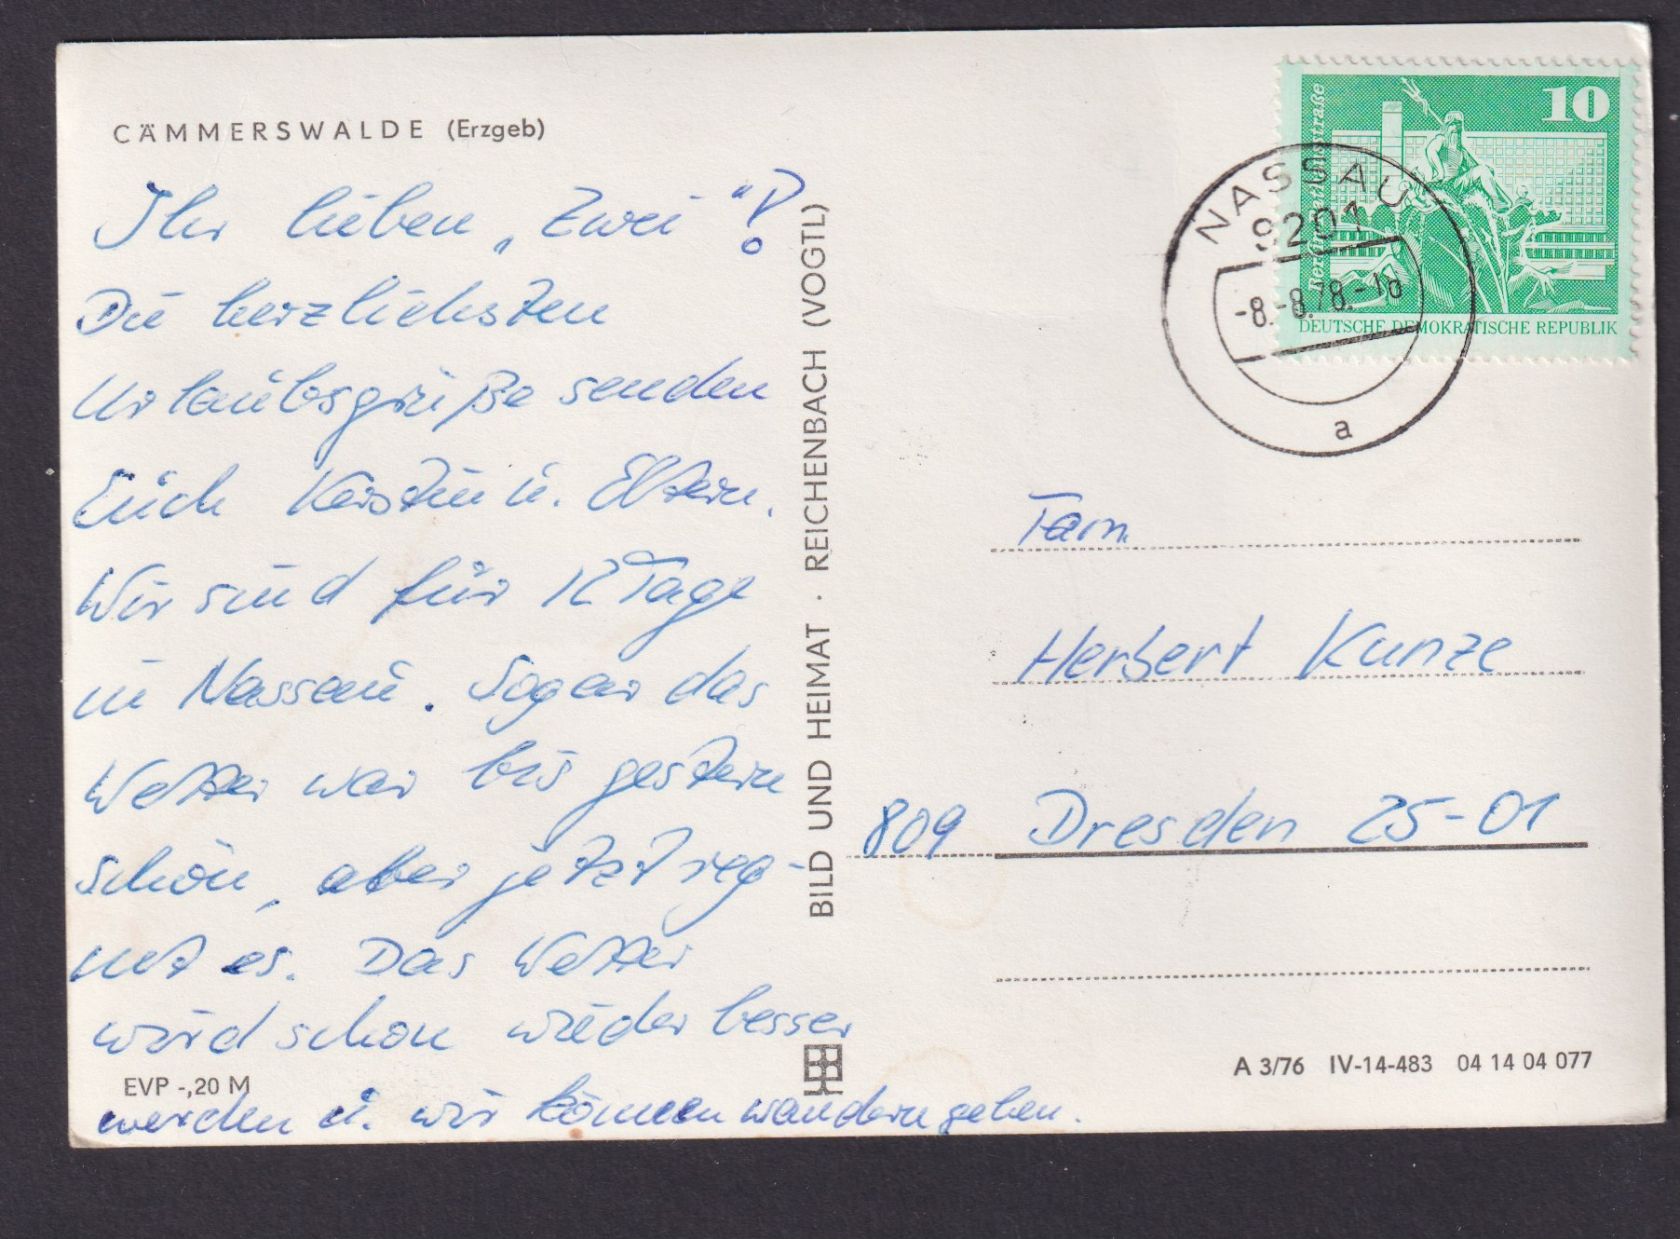 CÄMMERSWALDE (Erzgeb)
Ihr lieben „Zwei"!
Die herzlichsten
Urlaubsgrüße senden
Euch Kerstin u. Eltern.
Wir sind für 12 Tage
in Nassau. Sogar das
Wetter war bis gestern
schön, aber jetzt reg-
net es. Das Wetter
wird schon wieder besser
EVP -,20 M
werden u. wir können wandern gehen.
BILD UND HEIMAT · REICHENBACH (VOGTL)
10
Berlin, Rathausstraße
DEUTSCHE DEMOKRATISCHE REPUBLIK
NASSAU
9201
-8.-8.78.-18
a
Fam.
Herbert Kunze
809 Dresden 25-01
A 3/76 IV-14-483 04 14 04 077